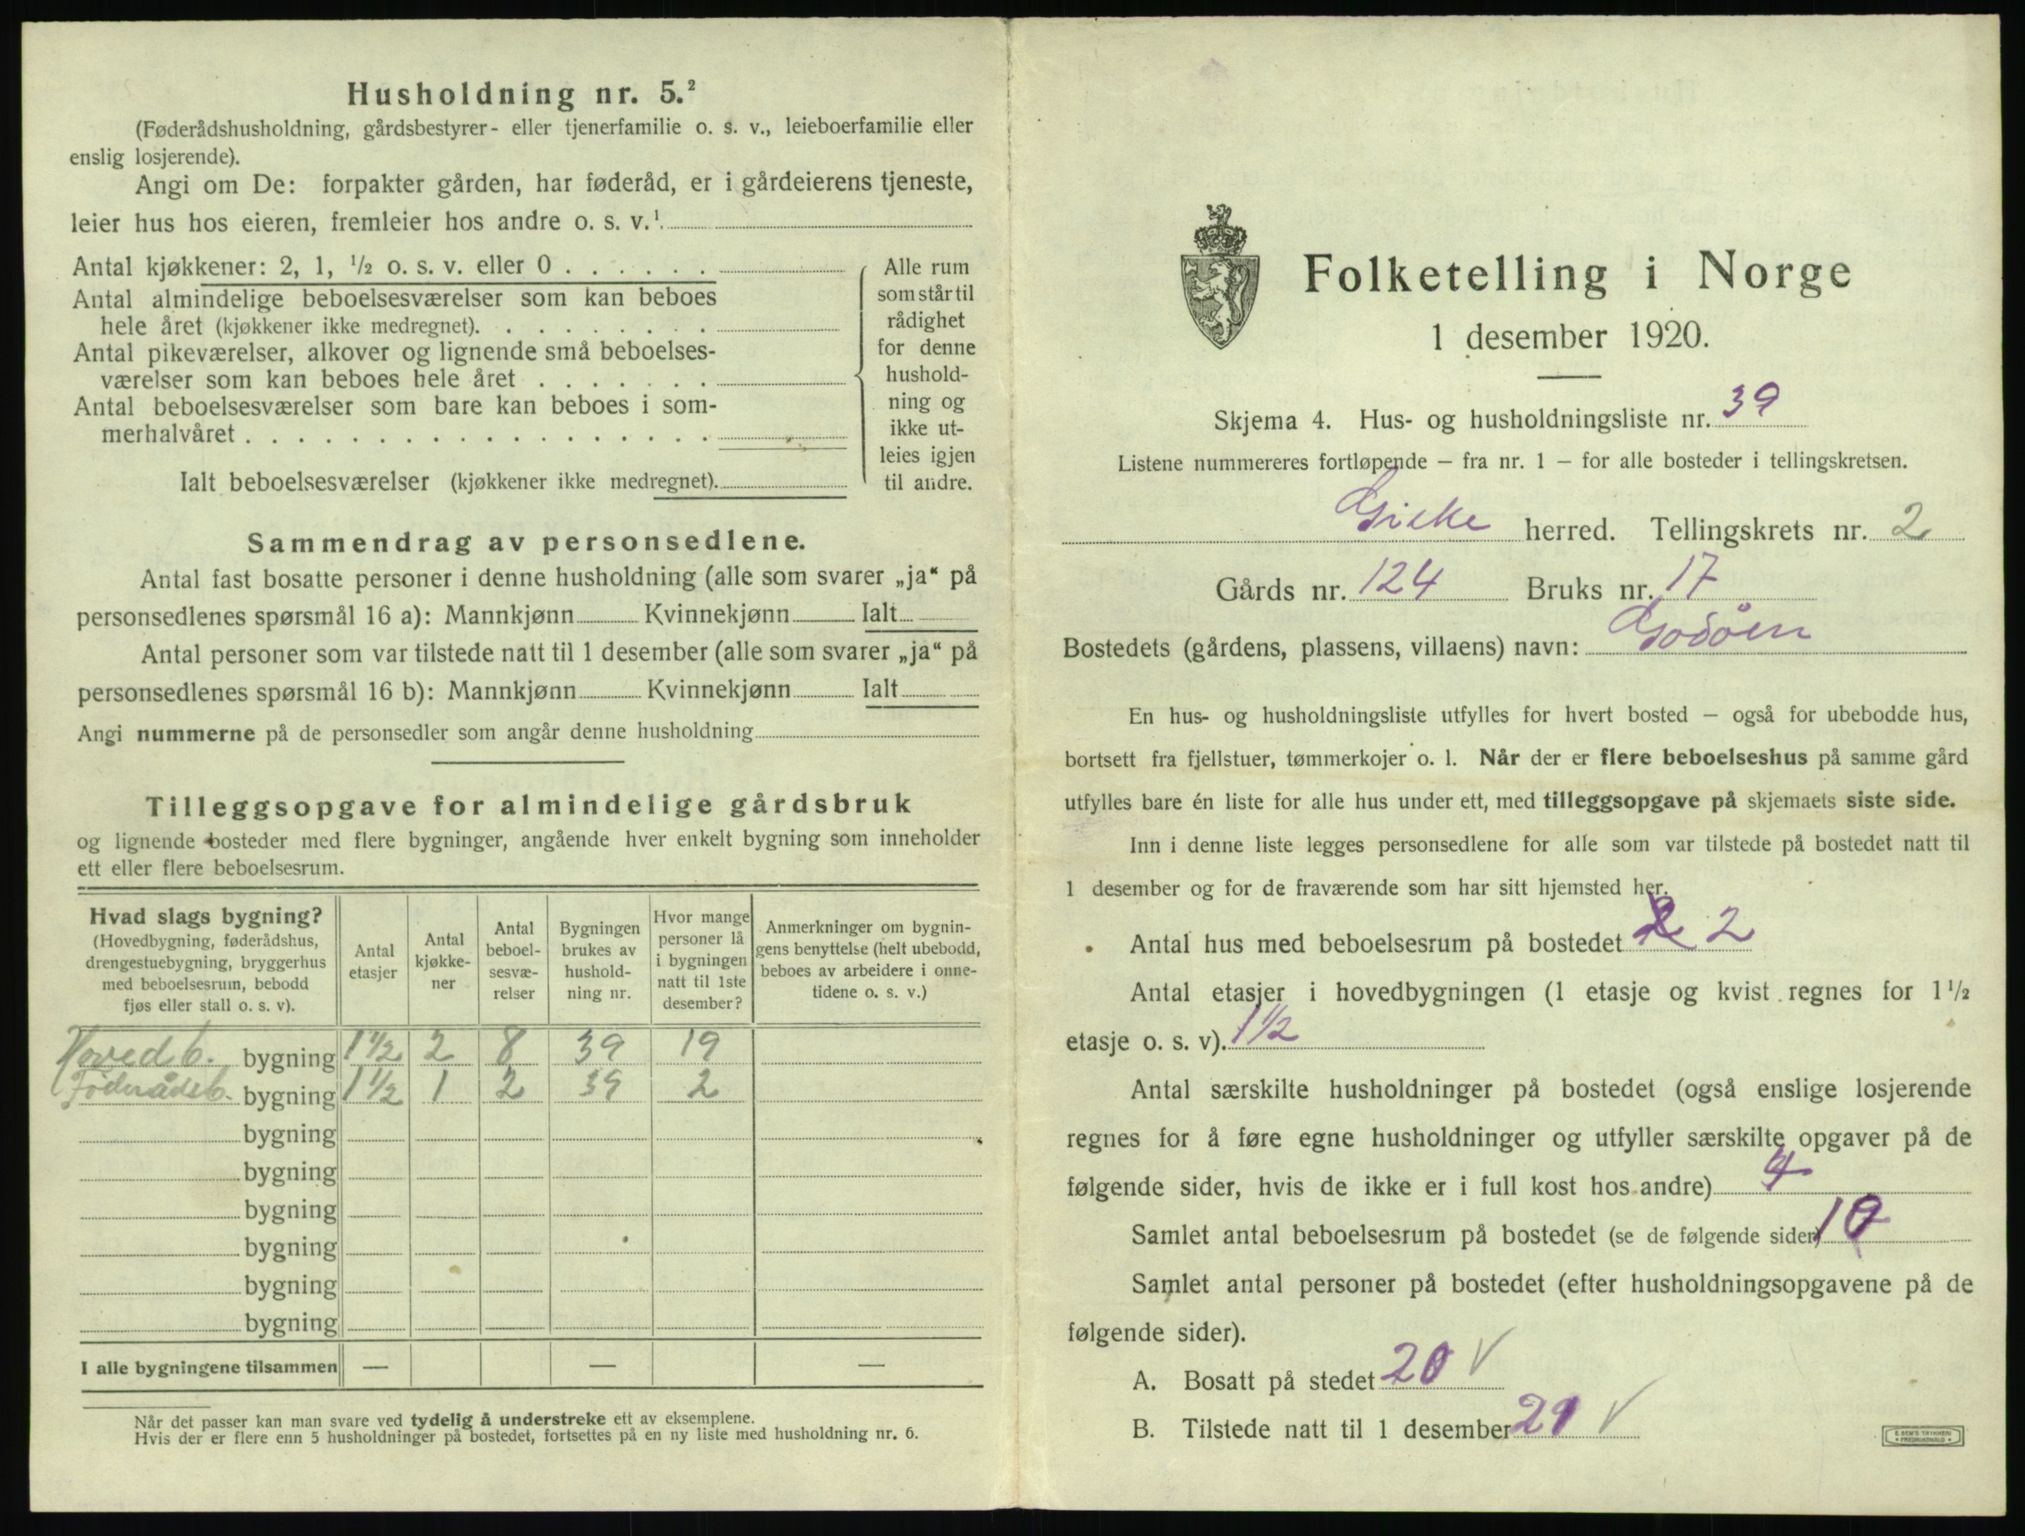 Husholdning nr. 5.²
(Føderådshusholdning, gårdsbestyrer- eller tjenerfamilie o. s. v., leieboerfamilie eller
enslig losjerende).
Angi om De: forpakter gården, har føderåd, er i gårdeierens tjeneste,
leier hus hos eieren, fremleier hos andre o. s. v.¹
Antal kjøkkener: 2, 1, ½ o. s. v. eller 0
Antal almindelige beboelsesværelser som kan beboes
hele året (kjøkkener ikke medregnet)
Antal pikeværelser, alkover og lignende små beboelses-
værelser som kan beboes hele året
Antal beboelsesværelser som bare kan beboes i som-
merhalvåret
Ialt beboelsesværelser (kjøkkener ikke medregnet)
Alle rum
som står til
rådighet
for denne
hushold-
ning og
ikke ut-
leies igjen
til andre.
Sammendrag av personsedlene.
Antal fast bosatte personer i denne husholdning (alle som svarer „ja“ på
personsedlenes spørsmål 16 a): Mannkjønn Kvinnekjønn Ialt
Antal personer som var tilstede natt til 1 desember (alle som svarer „ja“ på
personsedlenes spørsmål 16 b): Mannkjønn Kvinnekjønn Ialt
Angi nummerne på de personsedler som angår denne husholdning
Tilleggsopgave for almindelige gårdsbruk
og lignende bosteder med flere bygninger, angående hver enkelt bygning som inneholder
ett eller flere beboelsesrum.
Hvad slags bygning?
(Hovedbygning, føderådshus,
drengestuebygning, bryggerhus
med beboelsesrum, bebodd
fjøs eller stall o. s. v).
Antal
etasjer
Antal
kjøkke-
ner
Antal
beboel-
sesvæ-
relser
Bygningen
brukes av
hushold-
ning nr.
Hvor mange
personer lå
i bygningen
natt til 1ste
desember?
Anmerkninger om bygnin-
gens benyttelse (helt ubebodd,
beboes av arbeidere i onne-
tidene o. s. v.)
Hovedsb. bygning 1½ 2 8 39 19
Føderådsb. bygning 1½ 1 2 39 2
bygning
bygning
bygning
bygning
bygning
bygning
I alle bygningene tilsammen — — —
Når det passer kan man svare ved tydelig å understreke ett av eksemplene.
Hvis der er flere enn 5 husholdninger på bostedet, fortsettes på en ny liste med husholdning nr. 6.
Folketelling i Norge
1 desember 1920.
Skjema 4. Hus- og husholdningsliste nr. 39
Listene nummereres fortløpende – fra nr. 1 – for alle bosteder i tellingskretsen.
Giske herred. Tellingskrets nr. 2
Gårds nr. 124 Bruks nr. 17
Bostedets (gårdens, plassens, villaens) navn: Godøen
En hus- og husholdningsliste utfylles for hvert bosted – også for ubebodde hus,
bortsett fra fjellstuer, tømmerkojer o. l. Når der er flere beboelseshus på samme gård
utfylles bare én liste for alle hus under ett, med tilleggsopgave på skjemaets siste side.
Inn i denne liste legges personsedlene for alle som var tilstede på bostedet natt til
1 desember og for de fraværende som har sitt hjemsted her.
Antal hus med beboelsesrum på bostedet 2
Antal etasjer i hovedbygningen (1 etasje og kvist regnes for 1½
etasje o. s. v). 1½
Antal særskilte husholdninger på bostedet (også enslige losjerende
regnes for å føre egne husholdninger og utfyller særskilte opgaver på de
følgende sider, hvis de ikke er i full kost hos andre) 4
Samlet antal beboelsesrum på bostedet (se de følgende sider) 10
Samlet antal personer på bostedet (efter husholdningsopgavene på de
følgende sider).
A. Bosatt på stedet 20 V
B. Tilstede natt til 1 desember 21 V